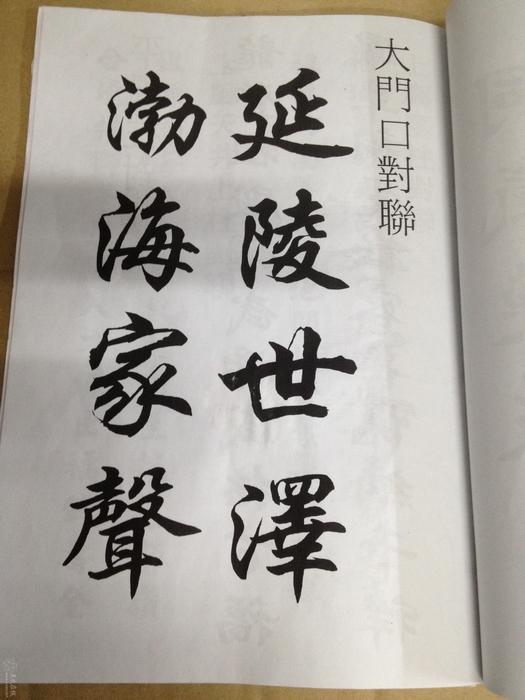 大門口對聯
延陵世澤
渤海家聲